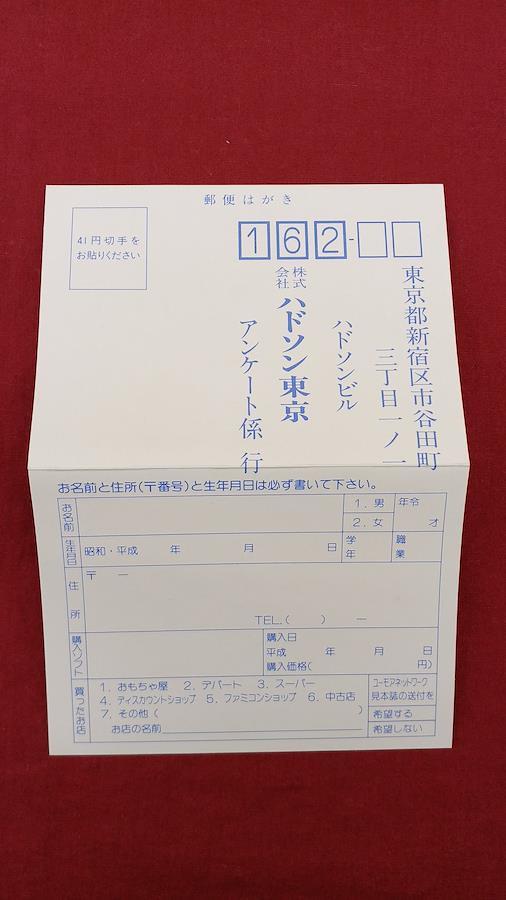 郵便はがき
41円切手を
お貼りください
162-
東京都新宿区市谷田町
三丁目一ノ一
ハドソンビル
株式会社ハドソン東京
アンケート係 行
お名前と住所(〒番号)と生年月日は必ず書いて下さい。
お名前
1. 男
2. 女
年令
才
生年月日
昭和・平成 年 月 日
学年
職業
住所
〒 ー
TEL.( ) ー
購入ソフト
購入日
平成 年 月 日
購入価格( 円)
買ったお店
1. おもちゃ屋 2. デパート 3. スーパー
4. ディスカウントショップ 5. ファミコンショップ 6. 中古店
7. その他( )
お店の名前
ユーモアネットワーク
見本誌の送付を
希望する
希望しない